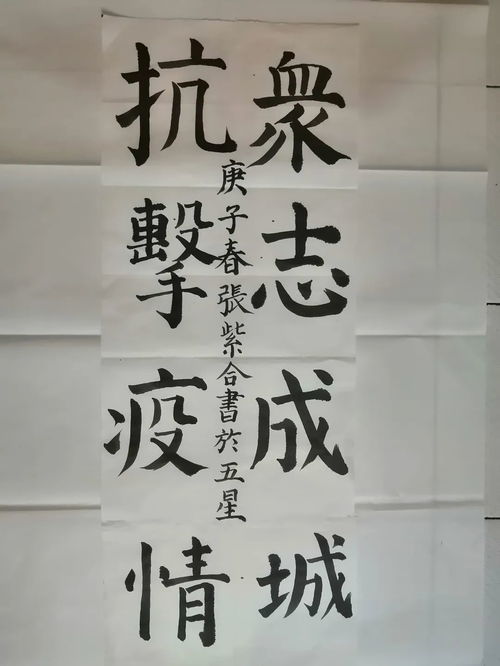 衆志成城
抗擊疫情
庚子春張紫合書於五星